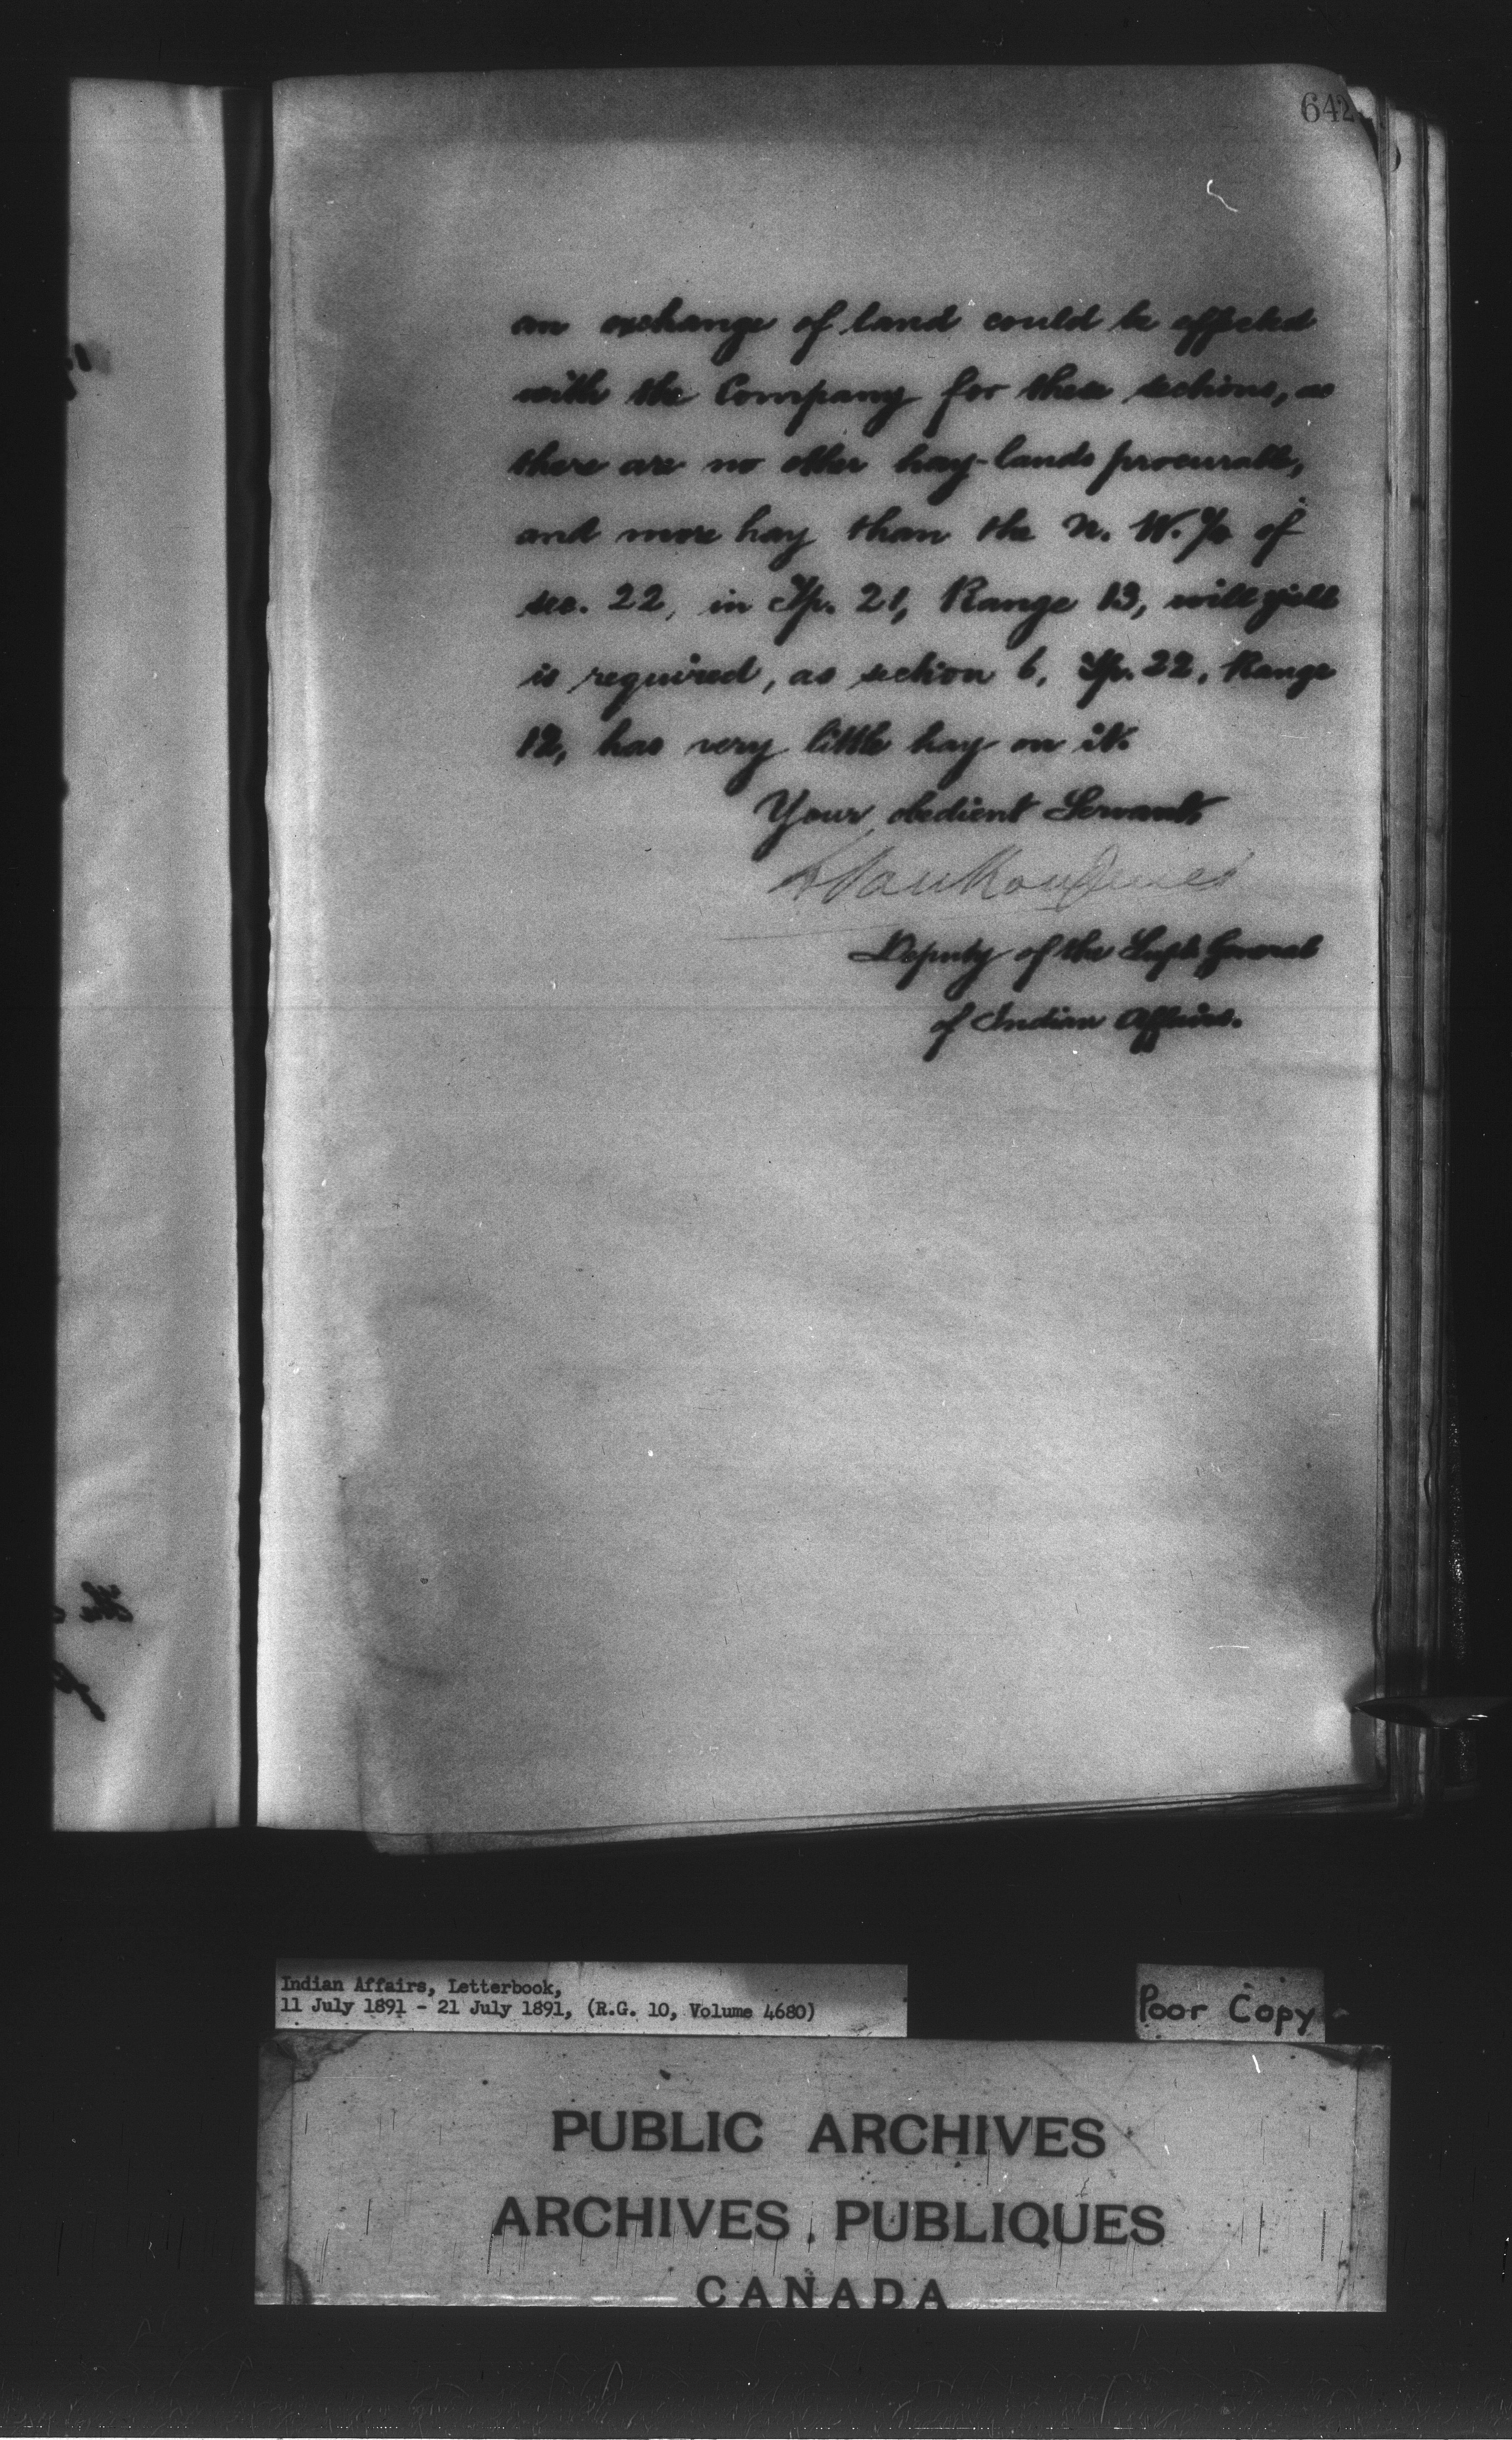 642
an exchange of land could be effected
with the Company for these sections, as
there are no other hay-lands procurable,
and more hay than the N. W. ¼ of
sec. 22, in Tp. 21, Range 13, will yield
is required, as section 6, Tp. 22, Range
12, has very little hay on it.
Your obedient Servant
L Vankoughnet
Deputy of the Supt. General
of Indian Affairs.
the
Indian Affairs, Letterbook,
11 July 1891 - 21 July 1891, (R.G. 10, Volume 4680)
Poor Copy
PUBLIC ARCHIVES
ARCHIVES PUBLIQUES
CANADA